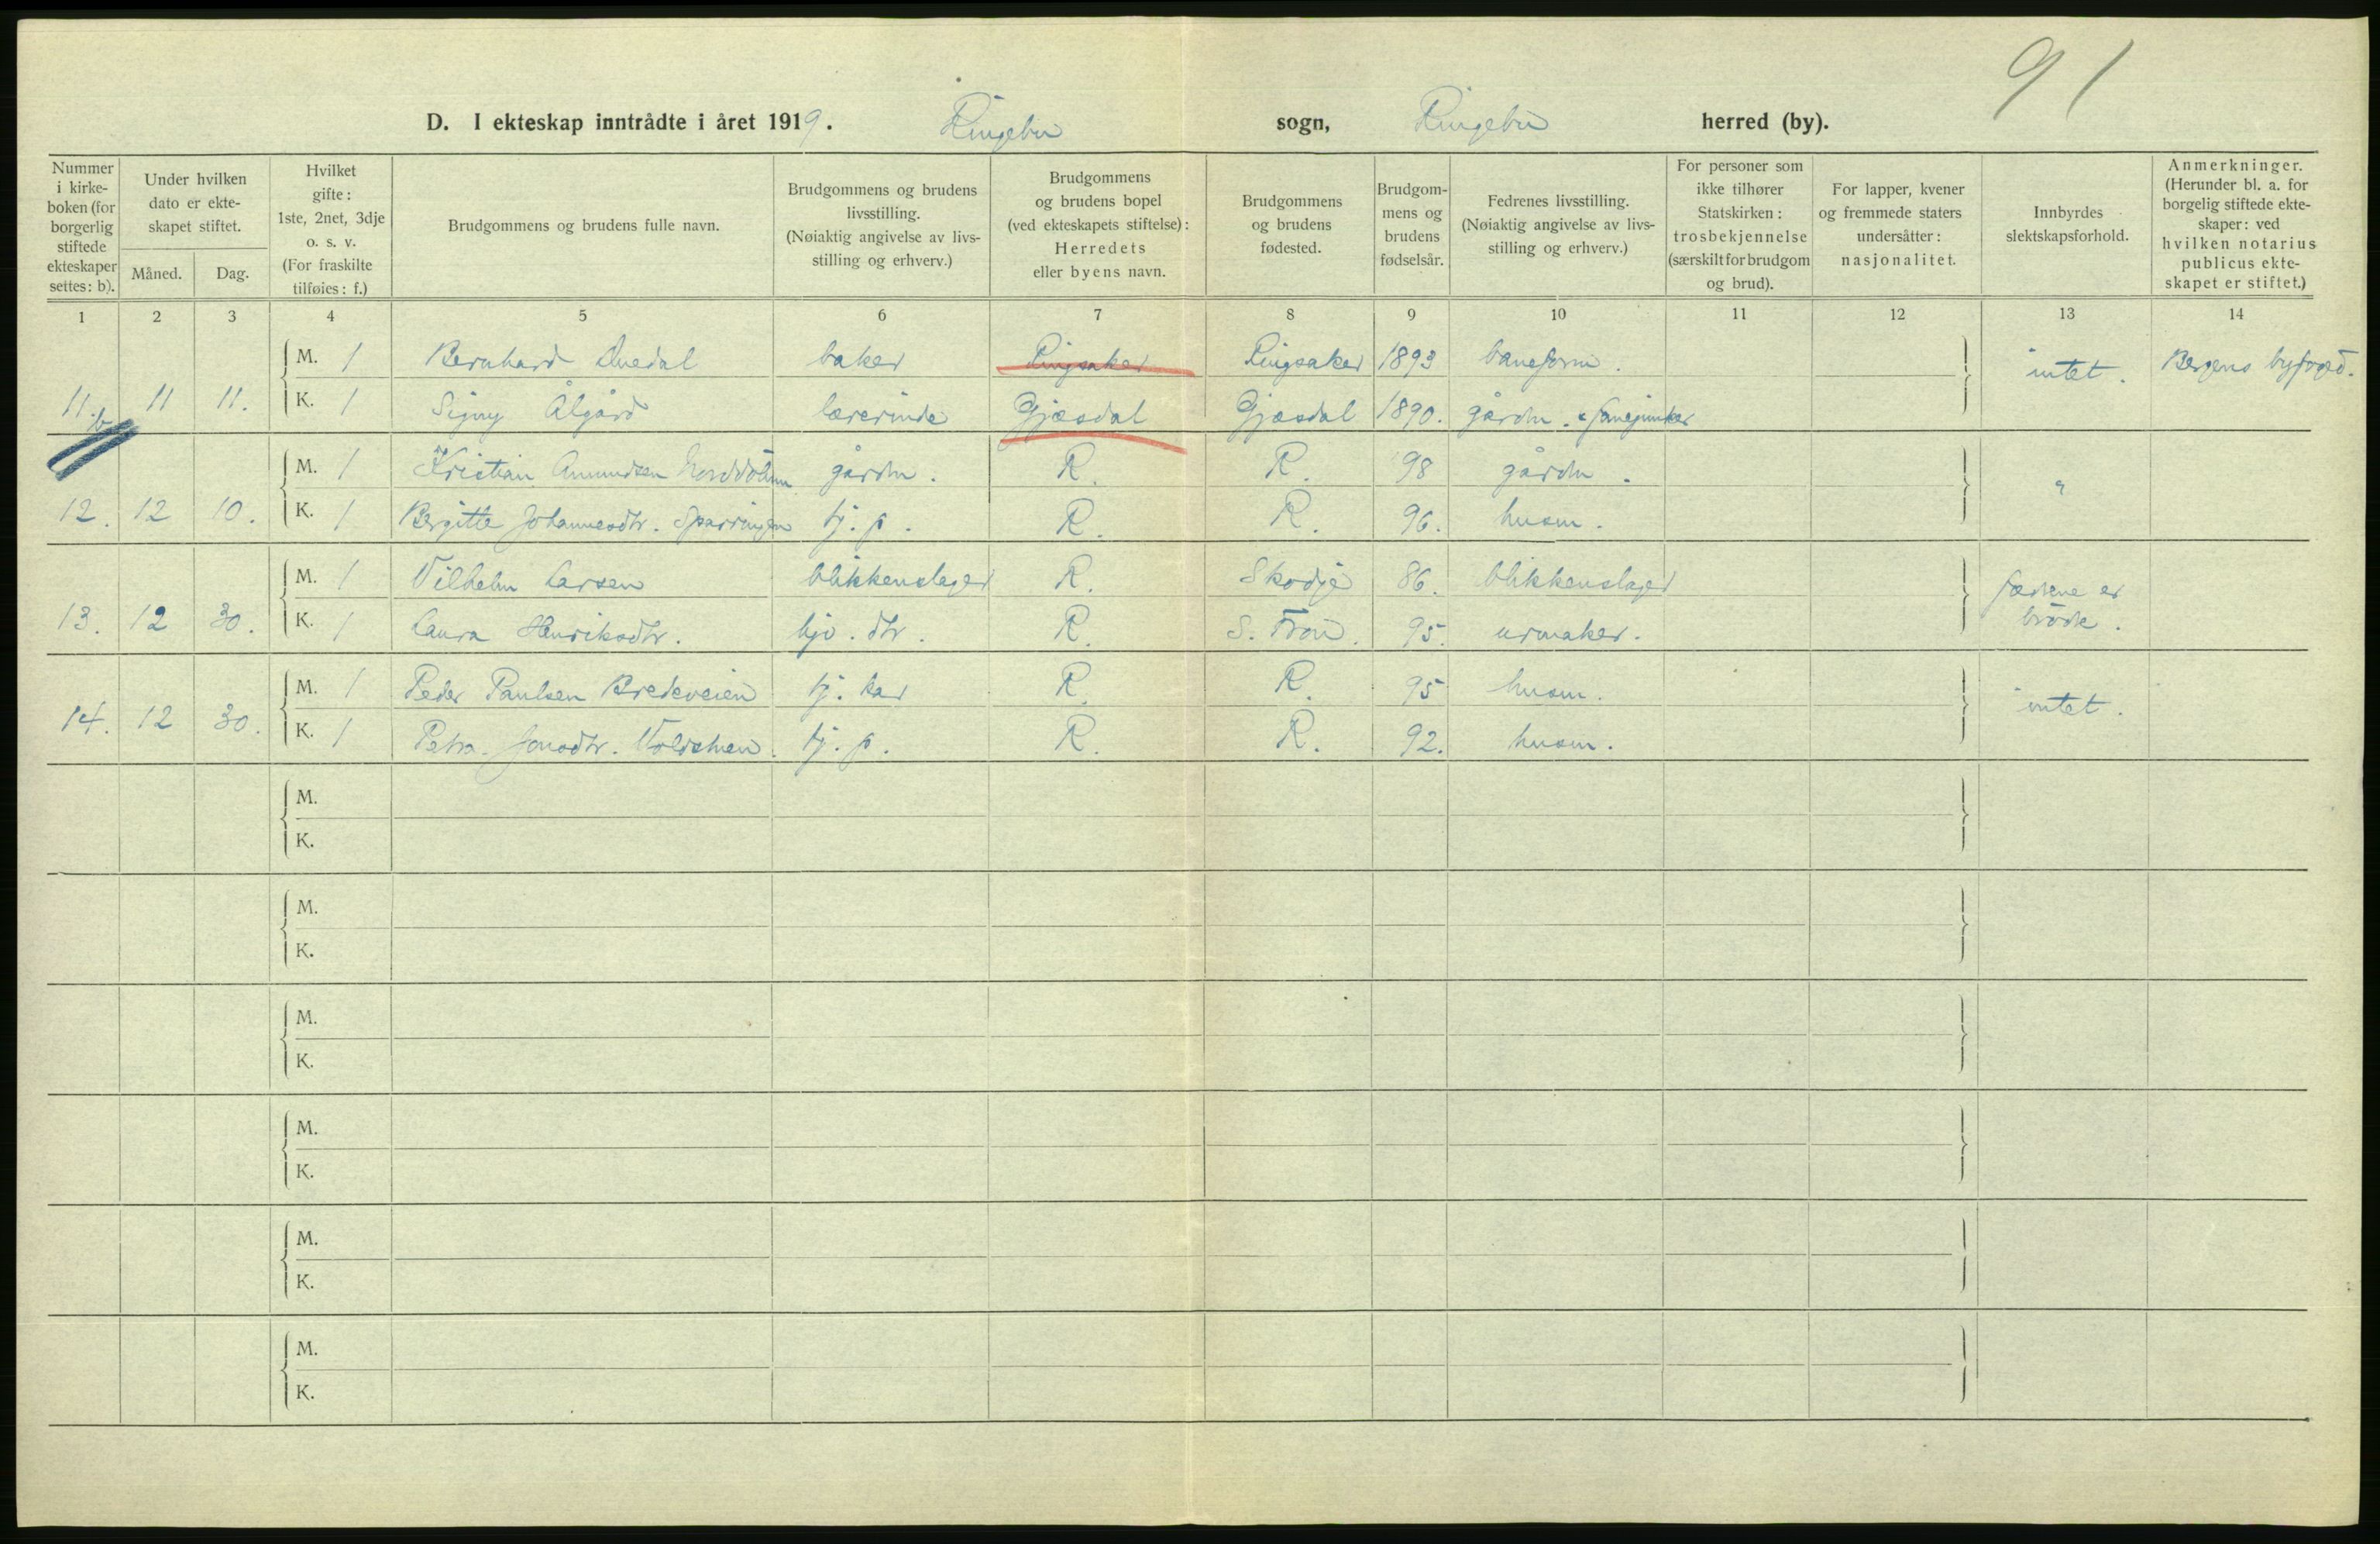 91
D. I ekteskap inntrådte i året 1919. Ringebu sogn, Ringebu herred (by).
Nummer i kirke- boken (for borgerlig stiftede ekteskaper settes: b).
Under hvilken dato er ekte- skapet stiftet.
Måned. Dag.
Hvilket gifte: 1ste, 2net, 3dje o. s. v. (For fraskilte tilføies: f.)
Brudgommens og brudens fulle navn.
Brudgommens og brudens livsstilling. (Nøiaktig angivelse av livs- stilling og erhverv.)
Brudgommens og brudens bopel (ved ekteskapets stiftelse): Herredets eller byens navn.
Brudgommens og brudens fødested.
Brudgom- mens og brudens fødselsår.
Fedrenes livsstilling. (Nøiaktig angivelse av livs- stilling og erhverv.)
For personer som ikke tilhører Statskirken: trosbekjennelse (særskilt for brudgom og brud).
For lapper, kvener og fremmede staters undersåtter: nasjonalitet.
Innbyrdes slektskapsforhold.
Anmerkninger. (Herunder bl. a. for borgelig stiftede ekte- skaper: ved hvilken notarius publicus ekte- skapet er stiftet.)
1 2 3 4 5 6 7 8 9 10 11 12 13 14
M. 1 Bernhard baker Ringsaker Ringsaker 1893 baneform. intet. Bergens byfoged.
11.b 11 11. K. 1 Signy Ålgård lærerinde Gjæsdal Gjæsdal 1890. gårdm. & fanejunker
M. 1 Kristian Amundsen gårdm. R. R. 98 gårdm. "
12. 12 10. K. 1 Bergitte Johannesdtr. Sparringen tj. p. R. R. 96. husm.
M. 1 Vilhelm Larsen blikkenslager R. Skodje 86. blikkenslager fædrene er
13. 12 30. K. 1 Laura Henriksdtr. hjv. dtr. R. S. Fron. 95. urmaker. brødre.
M. 1 Peder Paulsen Bredeveien tj. kar R. R. 95 husm. intet.
14. 12 30. K. 1 Petra Jonsdtr. tj. p. R. R. 92. husm.
M.
K.
M.
K.
M.
K.
M.
K.
M.
K.
M.
K.